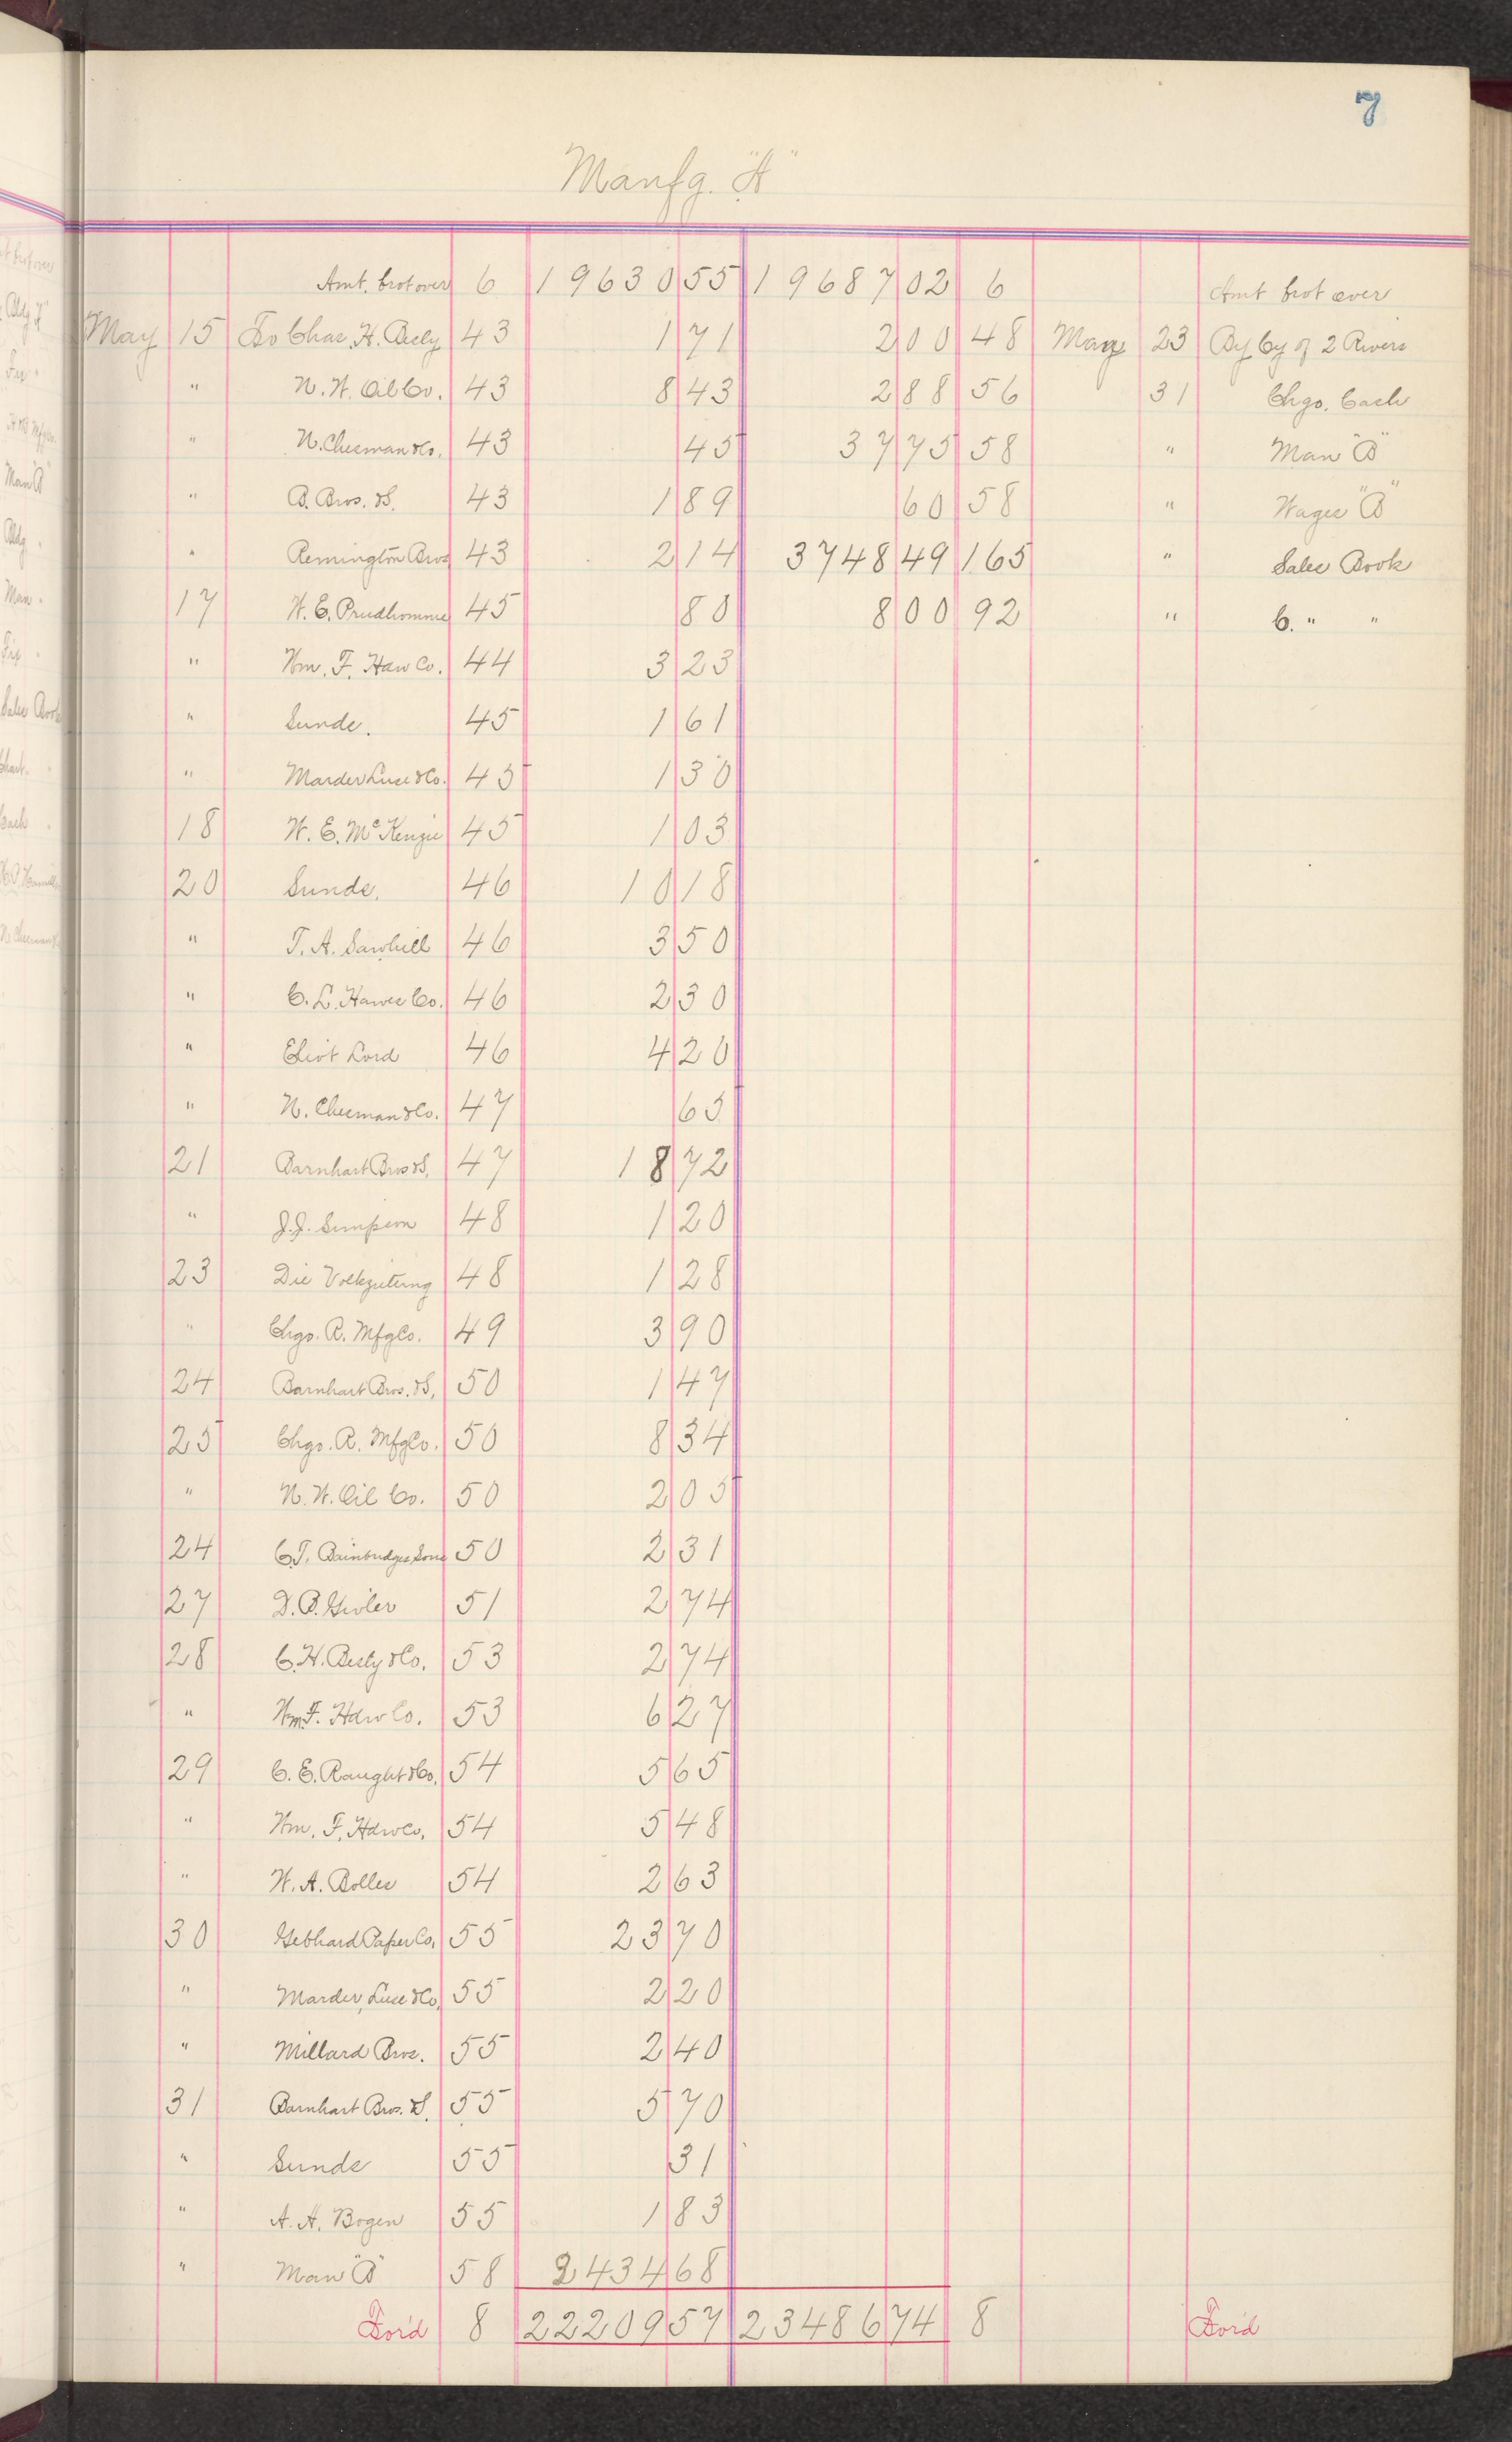 7
Manfg. "A"
Amt. brot over 6 19630 55 19687 02 6 Amt brot over
May 15 To Chas. H. Besly 43 1 71 2 00 48 May 23 By Cy of 2 Rivers
" N. W. Oil Co. 43 8 43 2 88 56 31 Chgo. Cash
" N. Cheeman & Co. 43 45 37 75 58 " Man "B"
" B. Bros. & S. 43 1 89 60 58 " Wages "B"
" Remington Bros 43 2 14 3748 49 165 " Sales Book
17 W. E. Prudhomme 45 80 8 00 92 " C. " "
" Wm. F. Haw Co. 44 3 23
" Sunds. 45 1 61
" Marder Luse & Co. 45 1 30
18 W. E. McKenzie 45 1 03
20 Sunds. 46 10 18
" T. A. Sawhill 46 3 50
" C. L. Hawes Co. 46 2 30
" Eliot Lord 46 4 20
" N. Cheeman & Co. 47 65
21 Barnhart Bros & S. 47 18 72
" J. J. Simpson 48 1 20
23 Die Volkzeitung 48 1 28
" Chgo. R. Mfg Co. 49 3 90
24 Barnhart Bros. & S. 50 1 47
25 Chgo. R. Mfg Co. 50 8 34
" N. W. Oil Co. 50 2 05
24 C. T. Bainbridges Sons 50 2 31
27 D. B. 51 2 74
28 C. H. Besly & Co. 53 2 74
" Wm. F. Hdw Co. 53 6 27
29 C. E. Raught & Co. 54 5 65
" Wm. F. Hdw Co. 54 5 48
" W. A. Bolles 54 2 63
30 Gebhard Paper Co. 55 23 70
" Marder, Luse & Co. 55 2 20
" Millard Bros. 55 2 40
31 Barnhart Bros. & S. 55 5 70
" Sunds 55 31
" A. H. Bogen 55 1 83
" Man "B" 58 2434 68
For'd 8 22209 57 23486 74 8 For'd